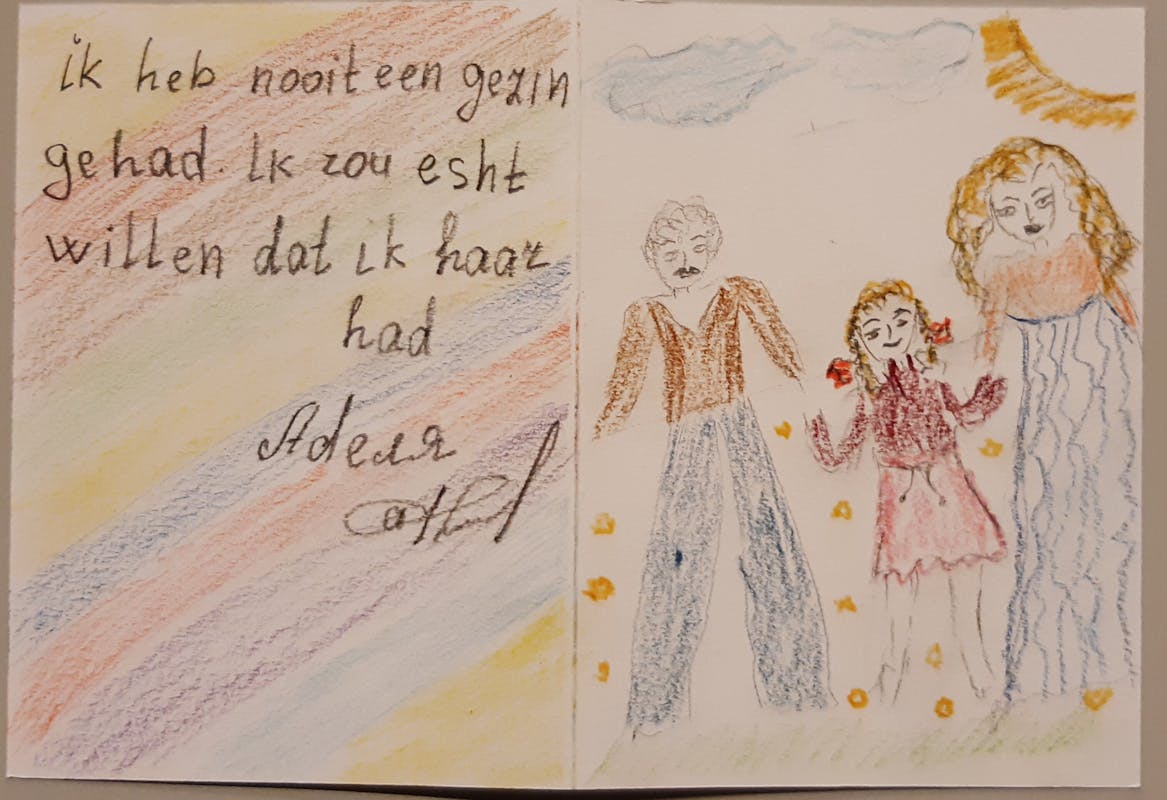 ik heb nooit een gezin
gehad. Ik zou esht
willen dat ik haar
had
Аделя